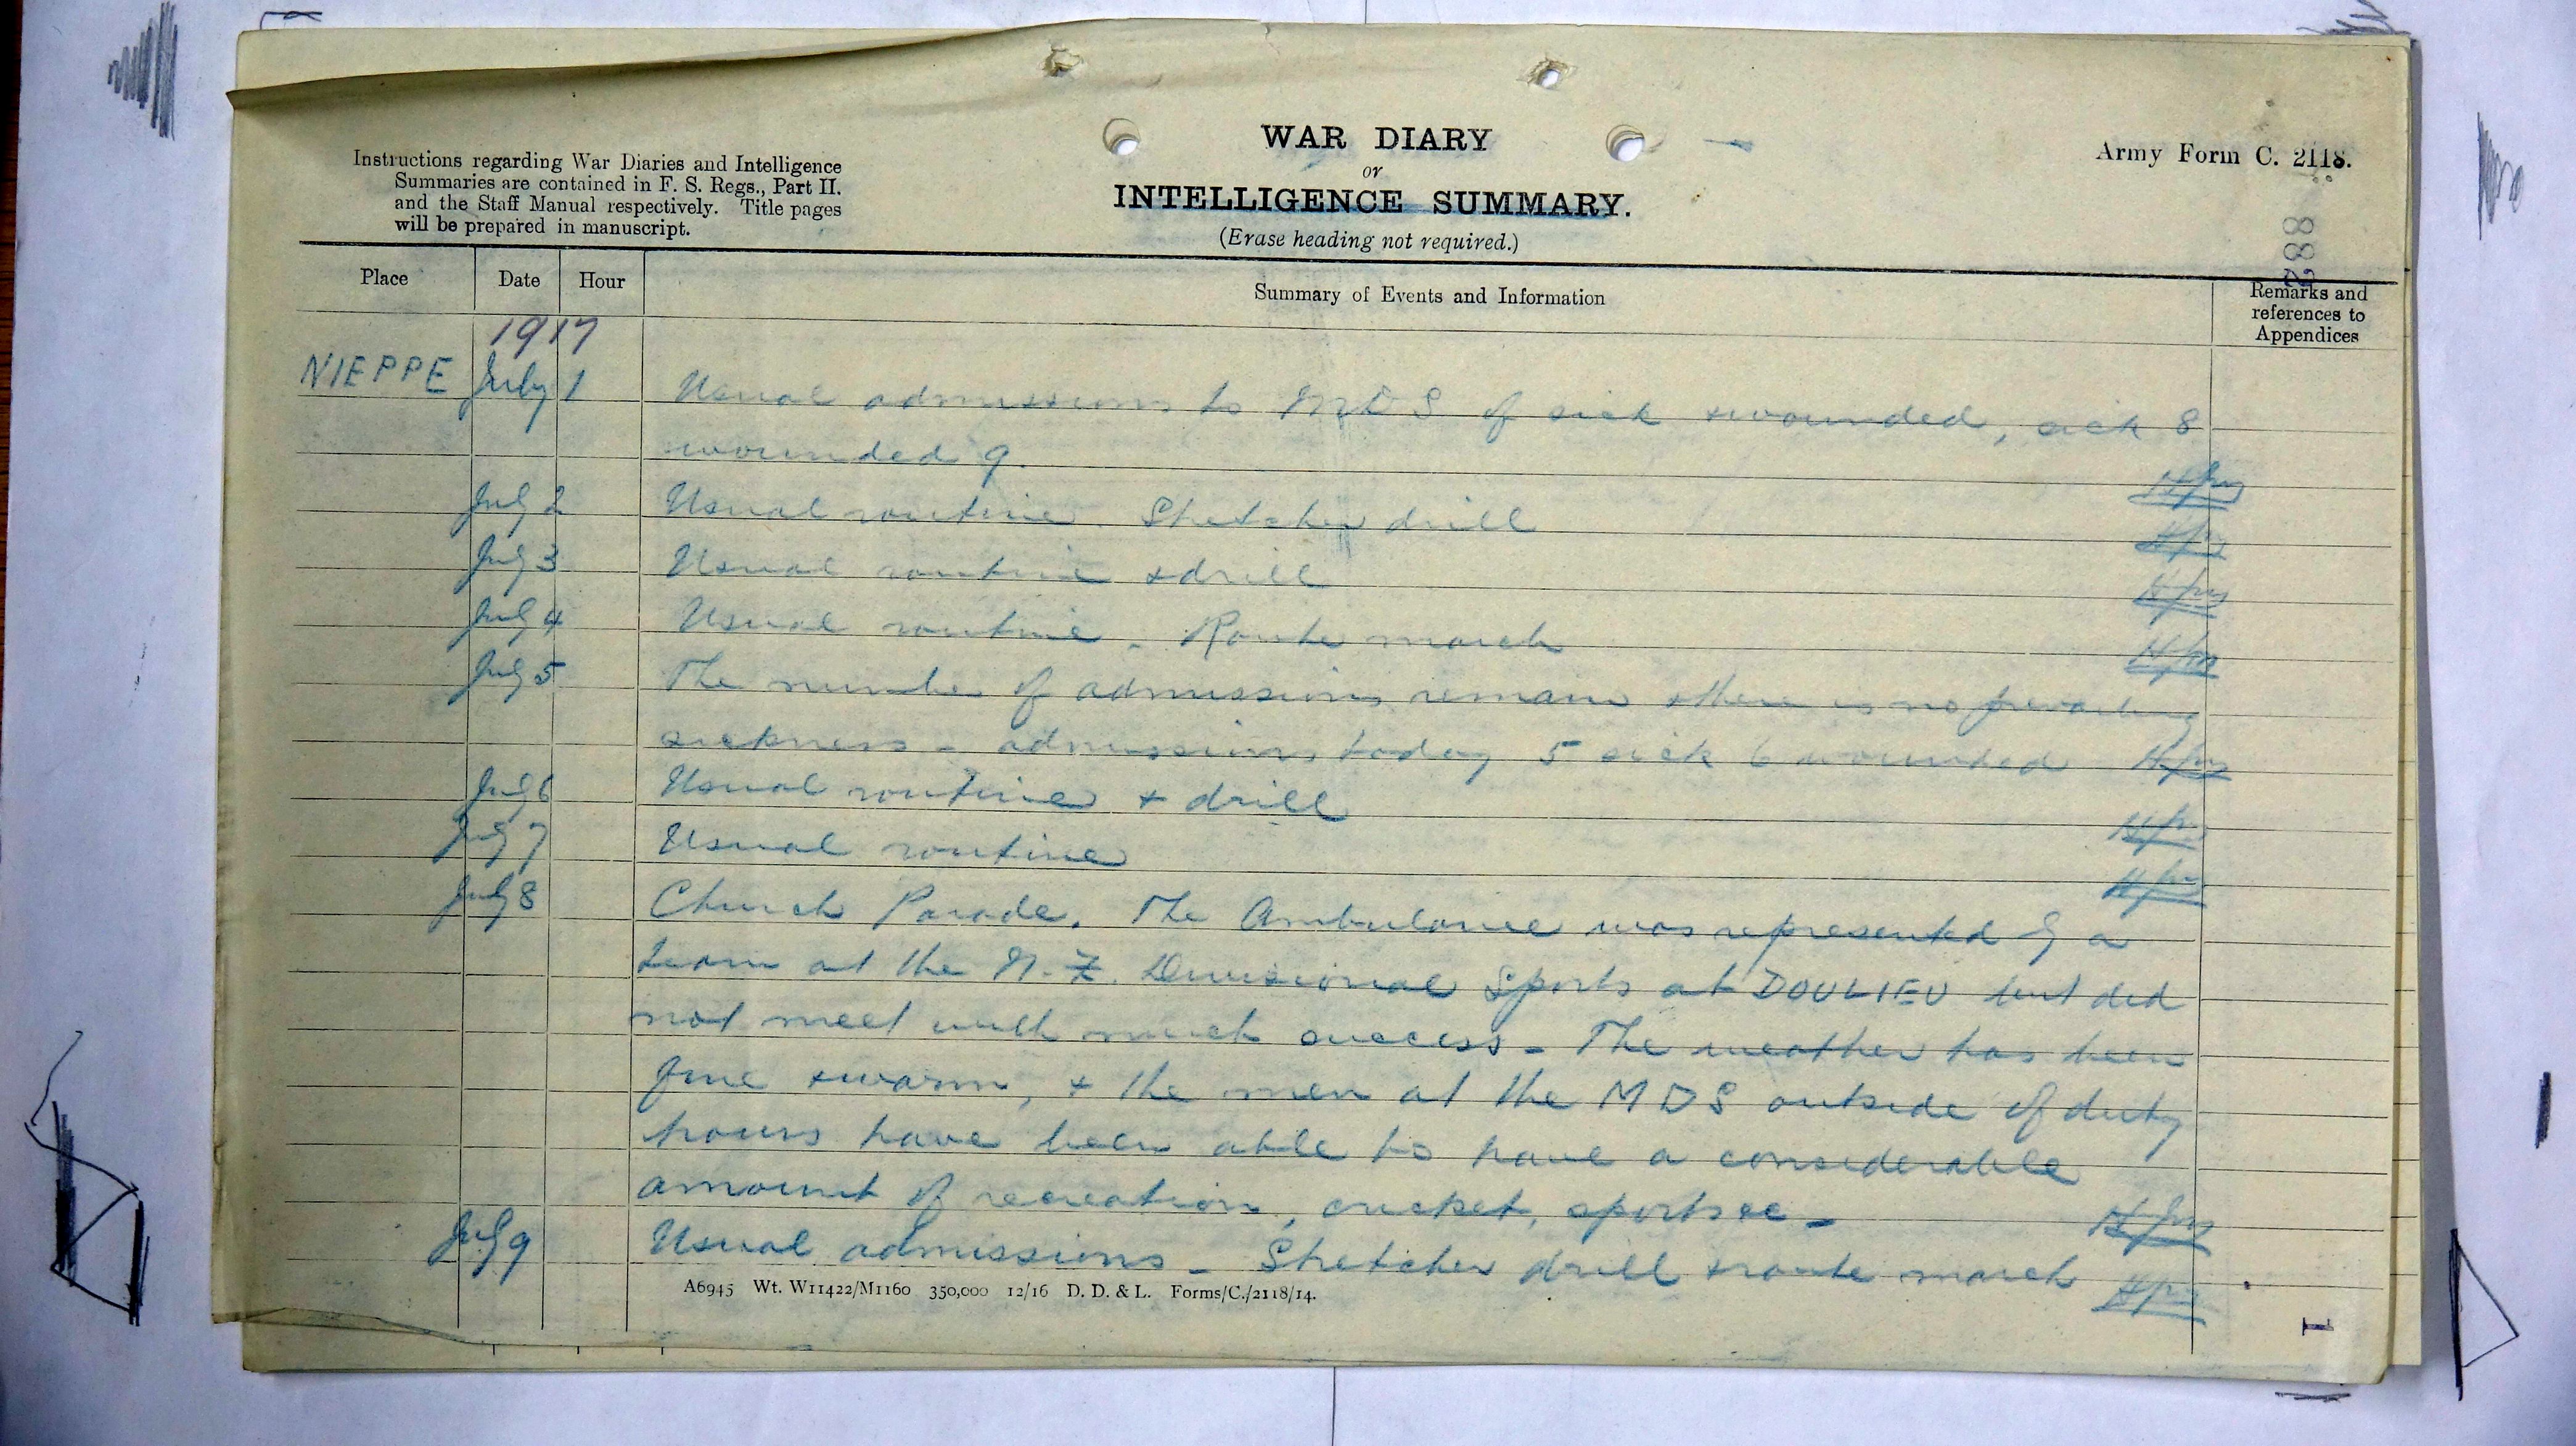 WAR DIARY
or
INTELLIGENCE SUMMARY.
(Erase heading not required.)
Army Form C. 2118.
Instructions regarding War Diaries and Intelligence
Summaries are contained in F. S. Regs., Part II.
and the Staff Manual respectively. Title pages
will be prepared in manuscript.
882
Place Date Hour Summary of Events and Information Remarks and
references to
Appendices
1917
NIEPPE July 1 Usual admissions to MDS of sick + wounded, sick 8
wounded 9.
July 2 Usual routine. Stretcher drill
July 3 Usual routine + drill
July 4 Usual routine. Route march
July 5 The number of admissions remain + there is no prevailing
sickness - admissions today 5 sick 6 wounded
July 6 Usual routine + drill
July 7 Usual routine
July 8 Church Parade. The Ambulance was represented by a
team at the N.Z. Divisional Sports at DOULIEU but did
not meet with much success - The weather has been
fine + warm, + the men at the MDS outside of duty
hours have been able to have a considerable
amount of recreation, cricket, sports &c -
July 9 Usual admissions - Stretcher drill + route march
A6945 Wt. W11422/M1160 350,000 12/16 D. D. & L. Forms/C./2118/14.
1